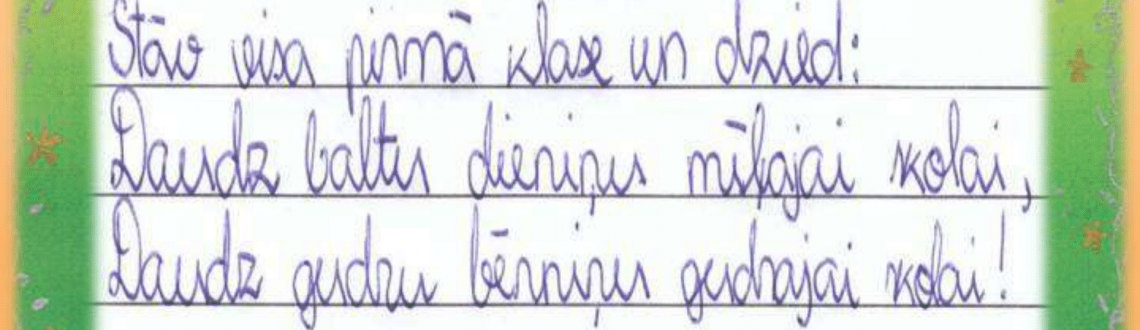 Stāv visa pirmā klase un dzied:
Daudz baltu dieniņu mīļajai skolai,
Daudz gudru bērniņu gudrajai skolai!